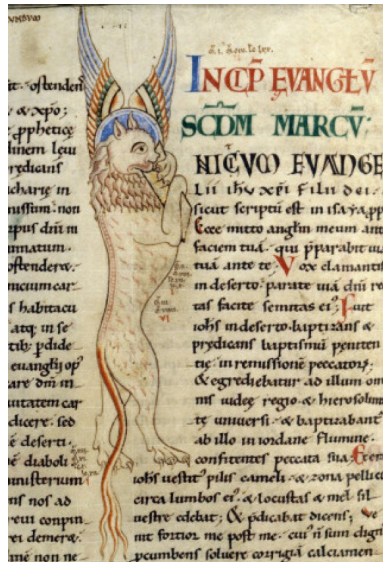 ostenden
& xpo;
pphetice
linem leui
redicans
in
missum· non
rpus dnī in
nmatum·
ostender&·
ncium car
s habitacu
atq; in se
tib; pdide
euanglii op
are dm̄ in
uitatem car
dicere· sed
e deserti·
diaboli
ministerium
ns nos ad
reui conpin
rei demere
me non ne
INCIP̄ EVANGLV̄
SCDM̄ MARCV̄·
NITIVM EVANGE
LII ihū xp̄i filii dei·
sicut scriptū est in isaya pp
Ecce mitto anglm̄ meum ant
faciem tuā· qui p̄parabit uiā
tuā ante te· Vox clamanti
in deserto· parate uiā dnī re
tas facite semitas ei'; Fuit
iohs in deserto baptizans &
predicans baptismū peniten
tie in remissionē peccatoꝝ·
& egrediebatur ad illum om
nis iudeę regio· & hierosolim
tę uniuersi· & baptizabant
ab illo in iordane flumine·
confitentes peccata sua; Erat
iohs uestit' pilis cameli· & zona pellici
circa lumbos ei'· & locustas & mel sil
uestre edebat; & p̄dicabat dicens; Ve
nit fortior me post me· cui' ñ sum dign
pcumbens soluere corrigiā calciamen